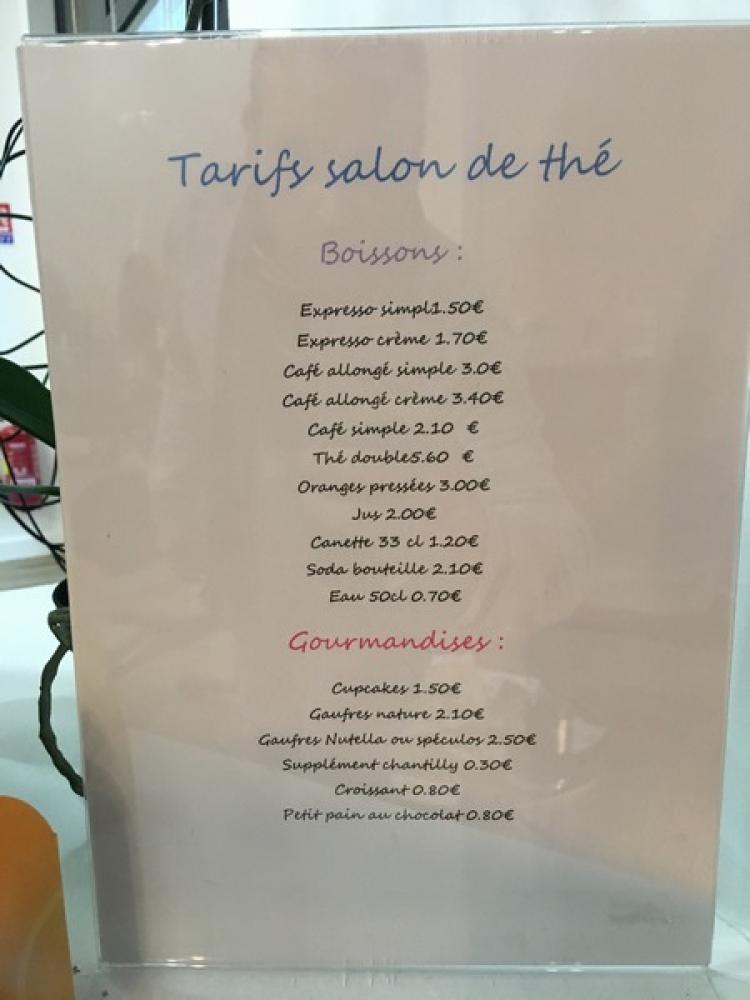 Tarifs salon de thé
Boissons :
Expresso simpl1.50€
Expresso crème 1.70€
Café allongé simple 3.0€
Café allongé crème 3.40€
Café simple 2.10 €
Thé double5.60 €
Oranges pressées 3.00€
Jus 2.00€
Canette 33 cl 1.20€
Soda bouteille 2.10€
Eau 50cl 0.70€
Gourmandises :
Cupcakes 1.50€
Gaufres nature 2.10€
Gaufres Nutella ou spéculos 2.50€
Supplément chantilly 0.30€
Croissant 0.80€
Petit pain au chocolat 0.80€